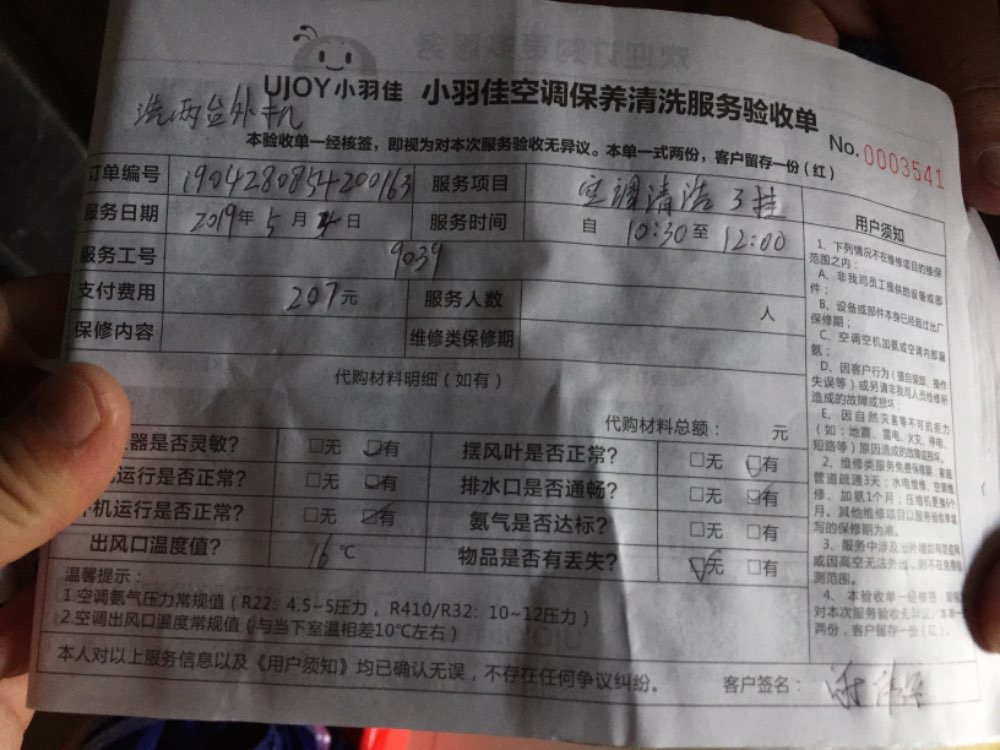 UJOY小羽佳 小羽佳空调保养清洗服务验收单
洗两台外机
No.0003541
本验收单一经核签，即视为对本次服务验收无异议。本单一式两份，客户留存一份（红）
订单编号 1904280854200163 服务项目 空调清洁3挂
服务日期 2019年5月4日 服务时间 自 10:30至 12:00
服务工号 9039
支付费用 207元 服务人数 人
保修内容 维修类保修期
代购材料明细（如有）
代购材料总额： 元
器是否灵敏? □无 ☑有 摆风叶是否正常? □无 ☑有
运行是否正常? □无 ☑有 排水口是否通畅? □无 ☑有
机运行是否正常? □无 ☑有 氨气是否达标? □无 □有
出风口温度值? 16℃ 物品是否有丢失? ☑无 □有
温馨提示：
1.空调氨气压力常规值（R22：4.5~5压力，R410/R32：10~12压力）
2.空调出风口温度常规值（与当下室温相差10℃左右）
本人对以上服务信息以及《用户须知》均已确认无误，不存在任何争议纠纷。 客户签名：
用户须知
1、下列情况不在维修项目的维保
范围之内：
A、非我司员工提供的设备或部
件；
B、设备或部件本身已经超过出厂
保修期；
C、空调空机加氨或空调内部漏
氨；
D、因客户行为（擅自装卸、操作
失误等）或另请非我司人员检修所
造成的故障或损坏；
E、因自然灾害等不可抗拒力
（如：地震、雷电、火灾、停电、
短路等）原因造成的故障或损坏。
2、维修类服务免费保修期：家庭
管道疏通3天；水电维修、空调维
修、加氨1个月；压缩机更换6个
月。其他维修项目以服务验收单填
写的保修期为准。
3、服务中涉及出外墙如有防盗网
或因高空无法外出，则不在免费检
测范围。
4、本验收单一经核签，即视
对本次服务验收无异议。本单一
两份，客户留存一份（红）。